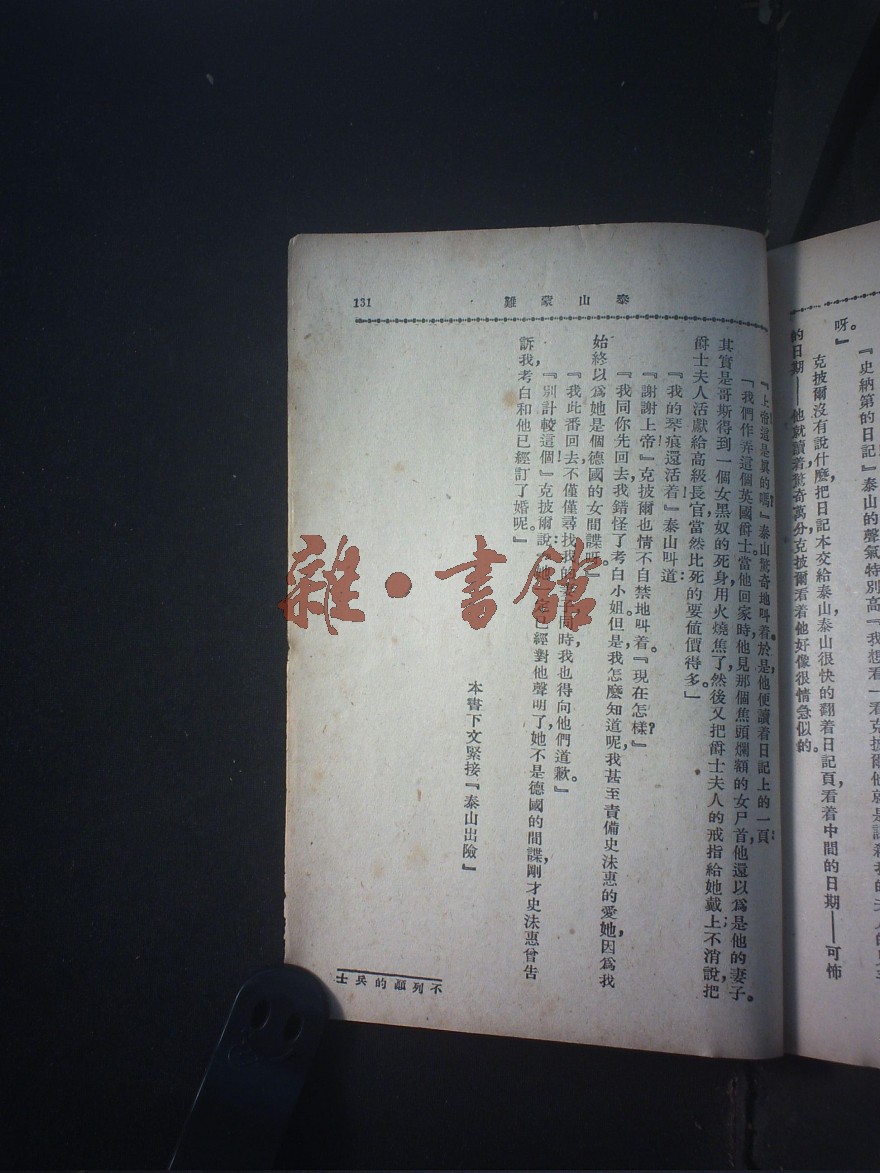 『史納第的日記』泰山的聲氣特別高『我想看一看克披爾他就是謀殺我的夫人的
呀。』
克披爾沒有說什麼把日記本交給泰山泰山很快的翻着日記頁看着中間的日期——可怖
的日期——他就讀着驚奇萬分克披爾看着他好像很情急似的。
泰山蒙難
131
『上帝這是真的嗎?』泰山驚奇地叫着於是他便讀着日記上的一頁:
「我們作弄這個英國爵士當他回家時,他見那個焦頭爛額的女尸首,他還以爲是他的妻子。
其實是哥斯得到一個女黑奴的死身用火燒焦了,然後又把爵士夫人的戒指給她戴上;不消說,把
爵士夫人活獻給高級長官當然比死的要値價得多。」
『我的琴痕還活着!』泰山叫道:
『謝謝上帝!』克披爾也情不自禁地叫着。『現在怎樣?』
『我同你先回去,我錯怪了考白小姐。但是,我怎麼知道呢,我甚至責備史沫惠的愛她,因爲我
始終以爲她是個德國的女間諜呀!』
『我此番回去,不僅僅尋找我的妻子,同時我也得向他們道歉。』
『別計較這個!』克披爾說:她是已經對他聲明了,她不是德國的間諜,剛才史沫惠曾告
訴我,考白和他已經訂了婚呢。』
本書下文緊接『泰山出險』
不列顛的兵士
雜·書館